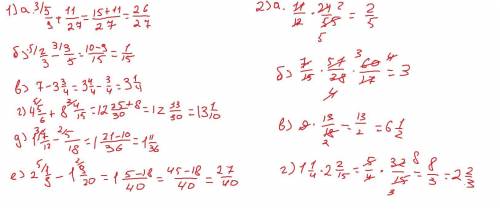 1) а. ³/ 5/9 + 11/27 = (15+11)/27 = 26/27
б) ⁵/ 2/3 - ³/ 3/5 = (10-9)/15 = 1/15
в) 7 - 3 3/4 = 3 4/4 - 3/4 = 3 1/4
г) 4 5/6 + 8 4/15 = 12 (25+8)/30 = 12 33/30 = 13 1/10
д) 1 ³/ 7/12 - ²/ 5/18 = 1 (21-10)/36 = 1 11/36
е) 2 ⁵/ 1/8 - 1 9/20 = 1 (5-18)/40 = (45-18)/40 = 27/40
2) а. 11/12 · 24/55 = 2/5
б) 7/15 · 51/28 · 60/17 = 3
в) · 13/18 = 13/2 = 6 1/2
г) 1 1/4 · 2 2/15 = 5/4 · 32/15 = 8/3 = 2 2/3